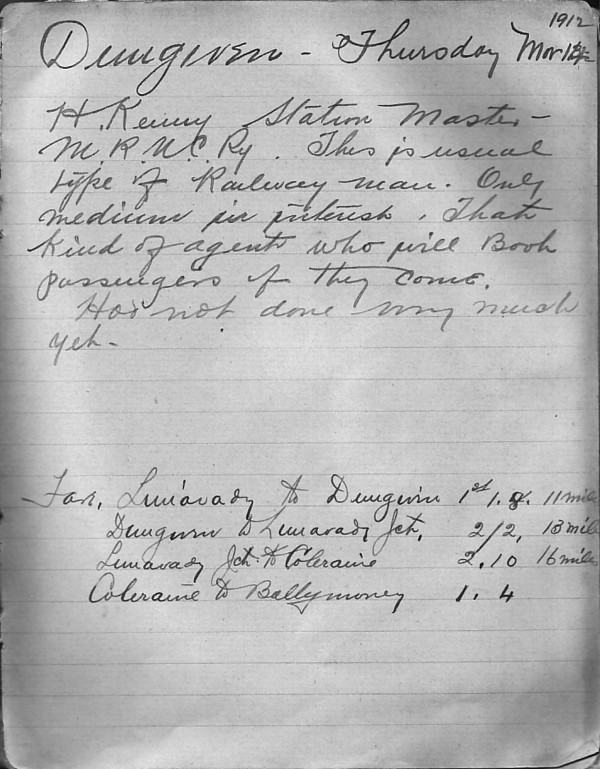 1912
Dungiven - Thursday Mar
H. Kenny Station Master -
M. R. N.C. Ry. This is usual
type of Railway man. Only
medium in interest. That
kind of agent who will Book
passengers if they come.
Has not done very much
yet -
Fare, Limavady to Dungiven 1st 1. 8. 11 miles
Dungiven to Limavady Jct, 2/2, 13 miles
Limavady Jct. to Coleraine 2. 10 16 miles
Coleraine to Ballymoney 1. 4